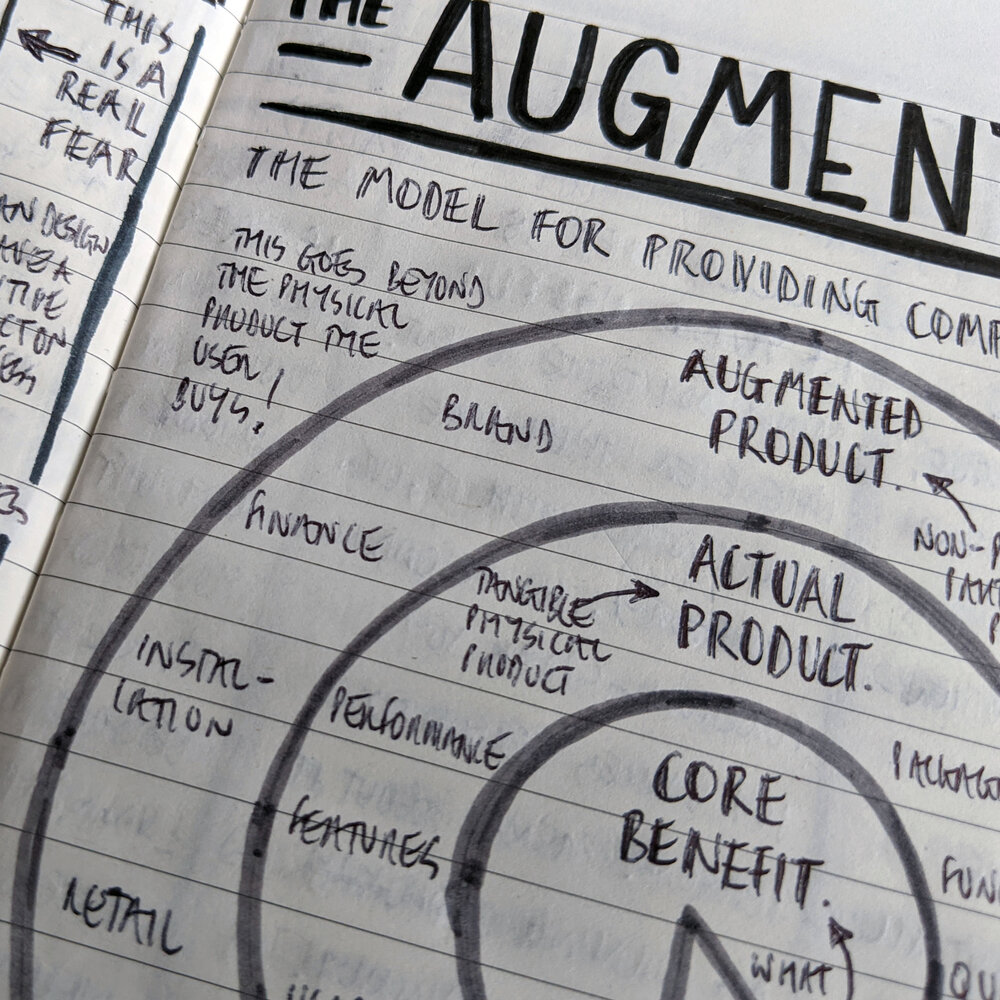 THIS
IS A
REAL
FEAR
AN DESIGN
THE AUGMEN
THE MODEL FOR PROVIDING COMP
THIS GOES BEYOND
THE PHYSICAL
PRODUCT THE
USER
BUYS!
AUGMENTED
PRODUCT.
BRAND
FINANCE
NON-P
ACTUAL
PRODUCT.
TANGIBLE
PHYSICAL
PRODUCT
INSTAL-
LATION
PERFORMANCE
PACKAG
CORE
BENEFIT.
FEATURES
FUN
RETAIL
WHAT
QU